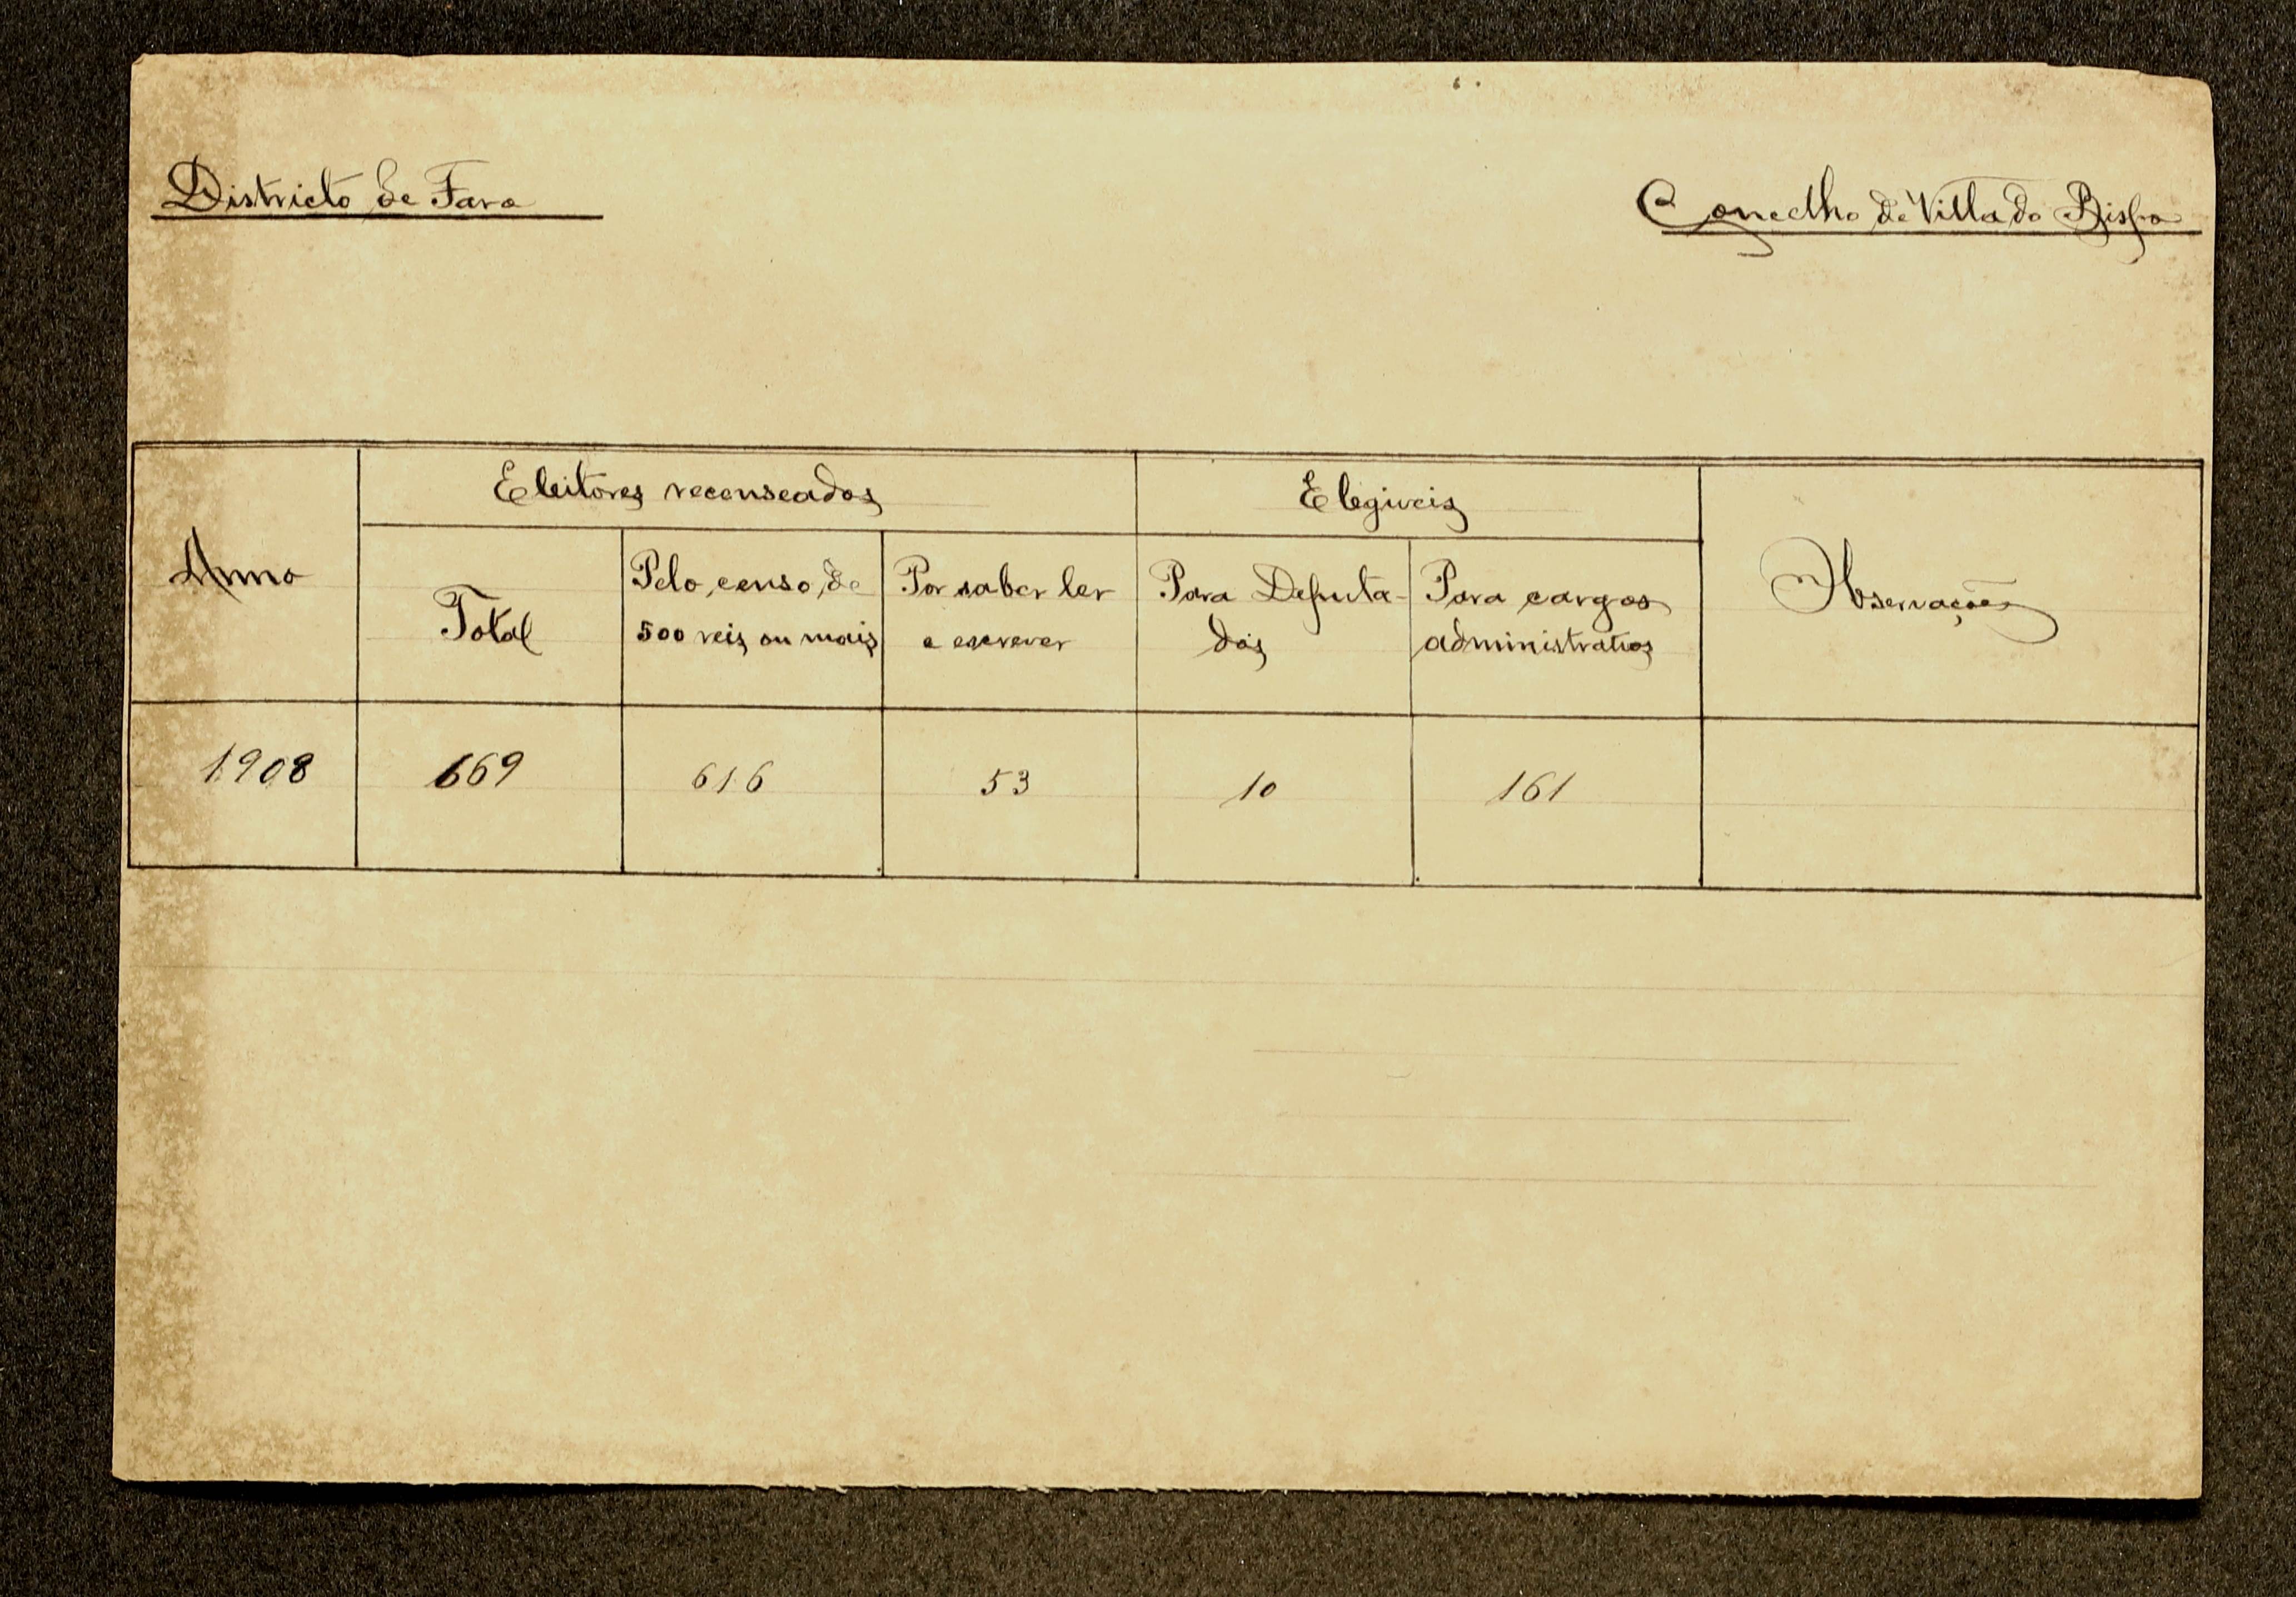 Districto de Faro
Concelho de Villa do Bispo
Eleitores recenseados
Elegiveis
Anno
Total
Pelo censo de
500 reis ou mais
Por saber ler
e escrever
Para Deputa-
dos
Para cargos
administrativos
Observações
1908
669
616
53
10
161